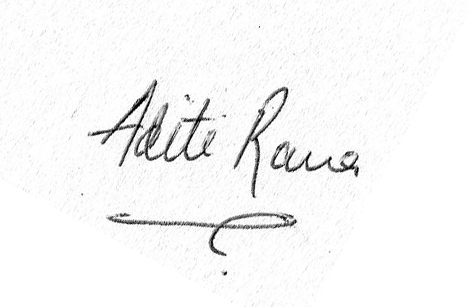 Aditi Rana